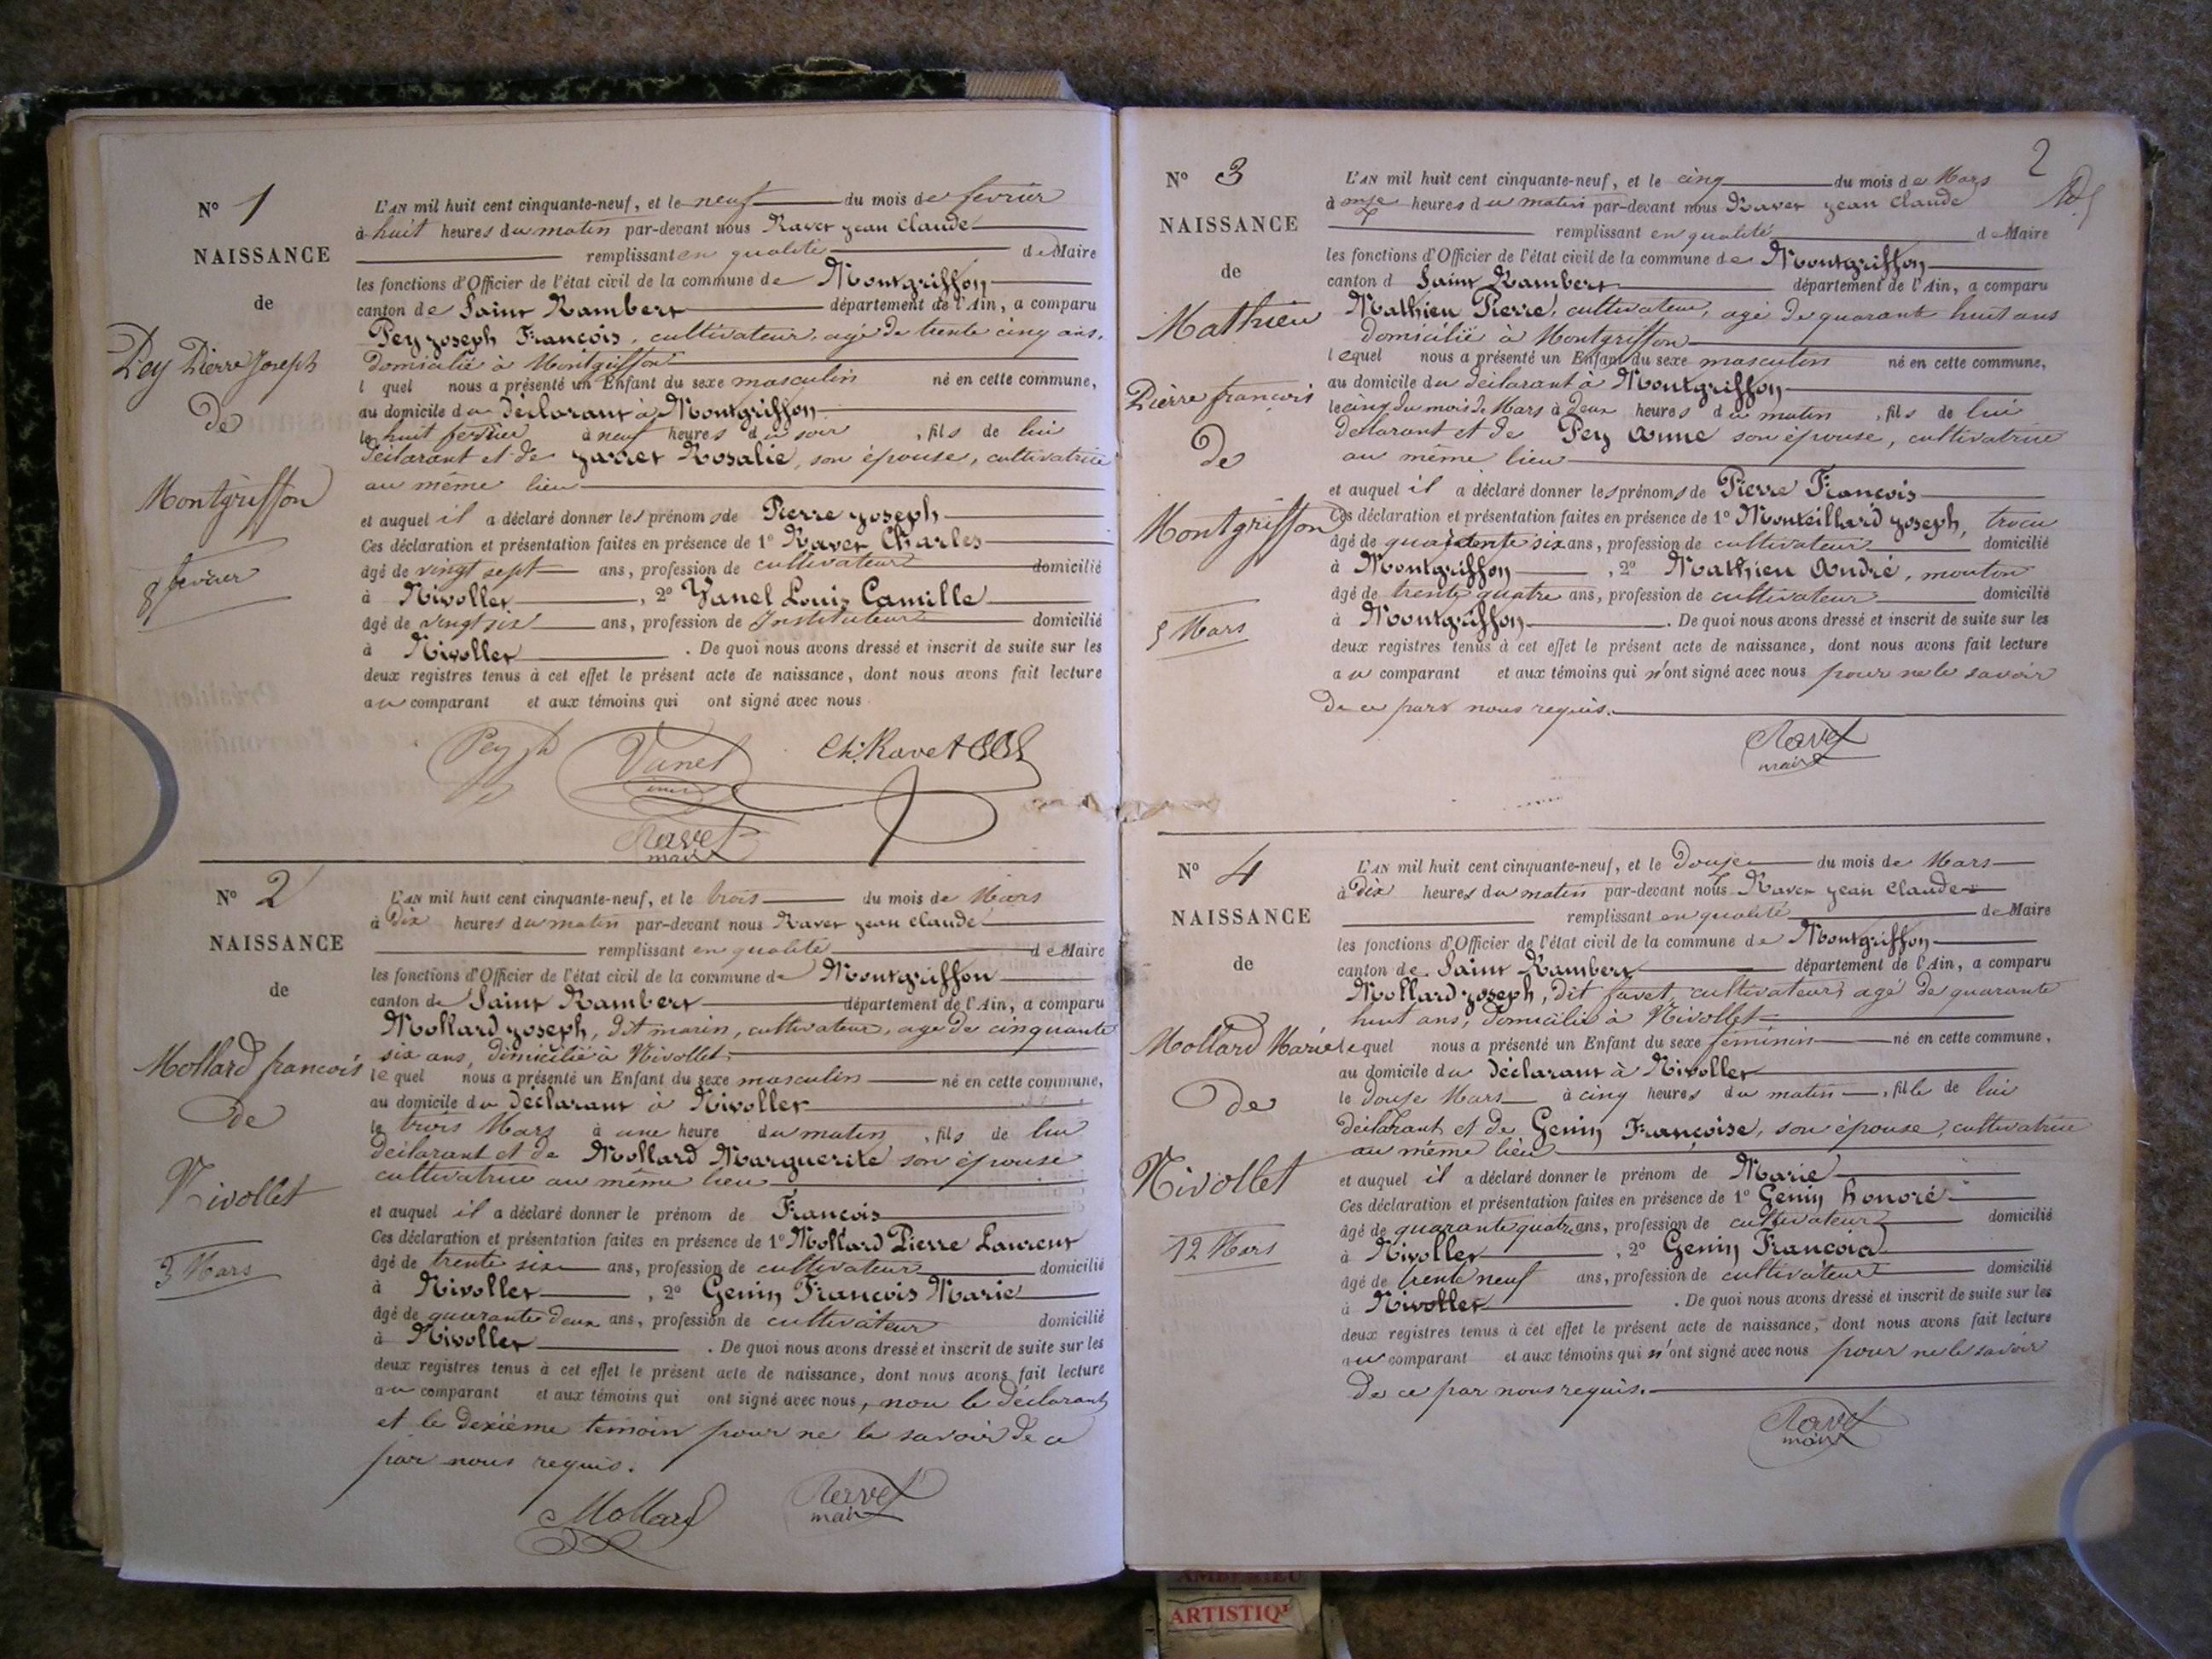 N° 1
NAISSANCE
de
Pey Pierre Joseph
De
Montgriffon
8 fevrier
L'AN mil huit cent cinquante-neuf, et le neuf du mois de fevrier
à huit heures du matin par-devant nous Ravet jean Claude
remplissant en qualité de Maire
les fonctions d'Officier de l'état civil de la commune de Montgriffon
canton de Saint Rambert département de l'Ain, a comparu
Pey joseph François, cultivateur, agé de trente cinq ans,
domicilié à Montgriffon
l quel nous a présenté un Enfant du sexe masculin né en cette commune,
au domicile du déclarant à Montgriffon
le huit fevrier à neuf heures du soir, fils de lui
déclarant et de Rosalie, son épouse, cultivatrice
au même lieu
et auquel il a déclaré donner les prénoms de Pierre joseph
Ces déclaration et présentation faites en présence de 1° Ravet Charles
âgé de vingt sept ans, profession de cultivateur domicilié
à Nivollet, 2° Vanel Louis Camille
âgé de vingt six ans, profession de Instituteur domicilié
à Nivollet. De quoi nous avons dressé et inscrit de suite sur les
deux registres tenus à cet effet le présent acte de naissance, dont nous avons fait lecture
au comparant et aux témoins qui ont signé avec nous
Pey Vanel Ch. Ravet
Ravet
maire
N° 2
NAISSANCE
de
Mollard francois
De
Nivollet
3 Mars
L'AN mil huit cent cinquante-neuf, et le trois du mois de Mars
à Dix heures du matin par-devant nous Ravet jean claude
remplissant en qualité de Maire
les fonctions d'Officier de l'état civil de la commune de Montgriffon
canton de Saint Rambert département de l'Ain, a comparu
Mollard joseph, dit marin, cultivateur, agé de cinquante
six ans, domicilié à Nivollet
le quel nous a présenté un Enfant du sexe masculin né en cette commune,
au domicile du déclarant à Nivollet
le trois Mars à une heure du matin, fils de lui
déclarant et de Mollard Marguerite son épouse
cultivatrice au même lieu
et auquel il a déclaré donner le prénom de François
Ces déclaration et présentation faites en présence de 1° Mollard Pierre Laurent
âgé de trente six ans, profession de cultivateur domicilié
à Nivollet, 2° Genin François Marie
âgé de quarante deux ans, profession de cultivateur domicilié
à Nivollet. De quoi nous avons dressé et inscrit de suite sur les
deux registres tenus à cet effet le présent acte de naissance, dont nous avons fait lecture
au comparant et aux témoins qui ont signé avec nous, non le déclarant
et le dexième témoin pour ne le savoir de ce
par nous requis.
Mollard Ravet
maire
2
N° 3
NAISSANCE
de
Mathieu
Pierre francois
De
Montgriffon
5 Mars
L'AN mil huit cent cinquante-neuf, et le cinq du mois de Mars
à onze heures du matin par-devant nous Ravet jean Claude
remplissant en qualité de Maire
les fonctions d'Officier de l'état civil de la commune de Montgriffon
canton d Saint Rambert département de l'Ain, a comparu
Mathieu Pierre, cultivateur, agé de quarante huit ans
domicilié à Montgriffon
lequel nous a présenté un Enfant du sexe masculin né en cette commune,
au domicile du déclarant à Montgriffon
le cinq du mois de Mars à Deux heures du matin, fils de lui
déclarant et de Pey Anne son épouse, cultivatrice
au même lieu
et auquel il a déclaré donner les prénoms de Pierre François
Ces déclaration et présentation faites en présence de 1° Monteillard joseph,
âgé de six ans, profession de cultivateur domicilié
à Montgriffon, 2° Mathieu André, mouton
âgé de trente quatre ans, profession de cultivateur domicilié
à Montgriffon. De quoi nous avons dressé et inscrit de suite sur les
deux registres tenus à cet effet le présent acte de naissance, dont nous avons fait lecture
au comparant et aux témoins qui n'ont signé avec nous pour ne le savoir
de ce part nous requis.
Ravet
maire
N° 4
NAISSANCE
de
Mollard Marie
De
Nivollet
12 Mars
L'AN mil huit cent cinquante-neuf, et le Douze du mois de Mars
à Dix heures du matin par-devant nous Ravet jean claude
remplissant en qualité de Maire
les fonctions d'Officier de l'état civil de la commune de Montgriffon
canton de Saint Rambert département de l'Ain, a comparu
Mollard joseph, dit favet, cultivateur, agé de quarante
huit ans, domicilié à Nivollet
lequel nous a présenté un Enfant du sexe féminin né en cette commune,
au domicile du déclarant à Nivollet
le Douze Mars à cinq heures du matin, fille de lui
déclarant et de Genin Françoise, son épouse, cultivatrice
au même lieu
et auquel il a déclaré donner le prénom de Marie
Ces déclaration et présentation faites en présence de 1° Genin honoré
âgé de quarante quatre ans, profession de cultivateur domicilié
à Nivollet, 2° Genin François
âgé de trente neuf ans, profession de cultivateur domicilié
à Nivollet. De quoi nous avons dressé et inscrit de suite sur les
deux registres tenus à cet effet le présent acte de naissance, dont nous avons fait lecture
au comparant et aux témoins qui n'ont signé avec nous pour ne le savoir
de ce par nous requis.
Ravet
maire
AMBERIEU
ARTISTIQ